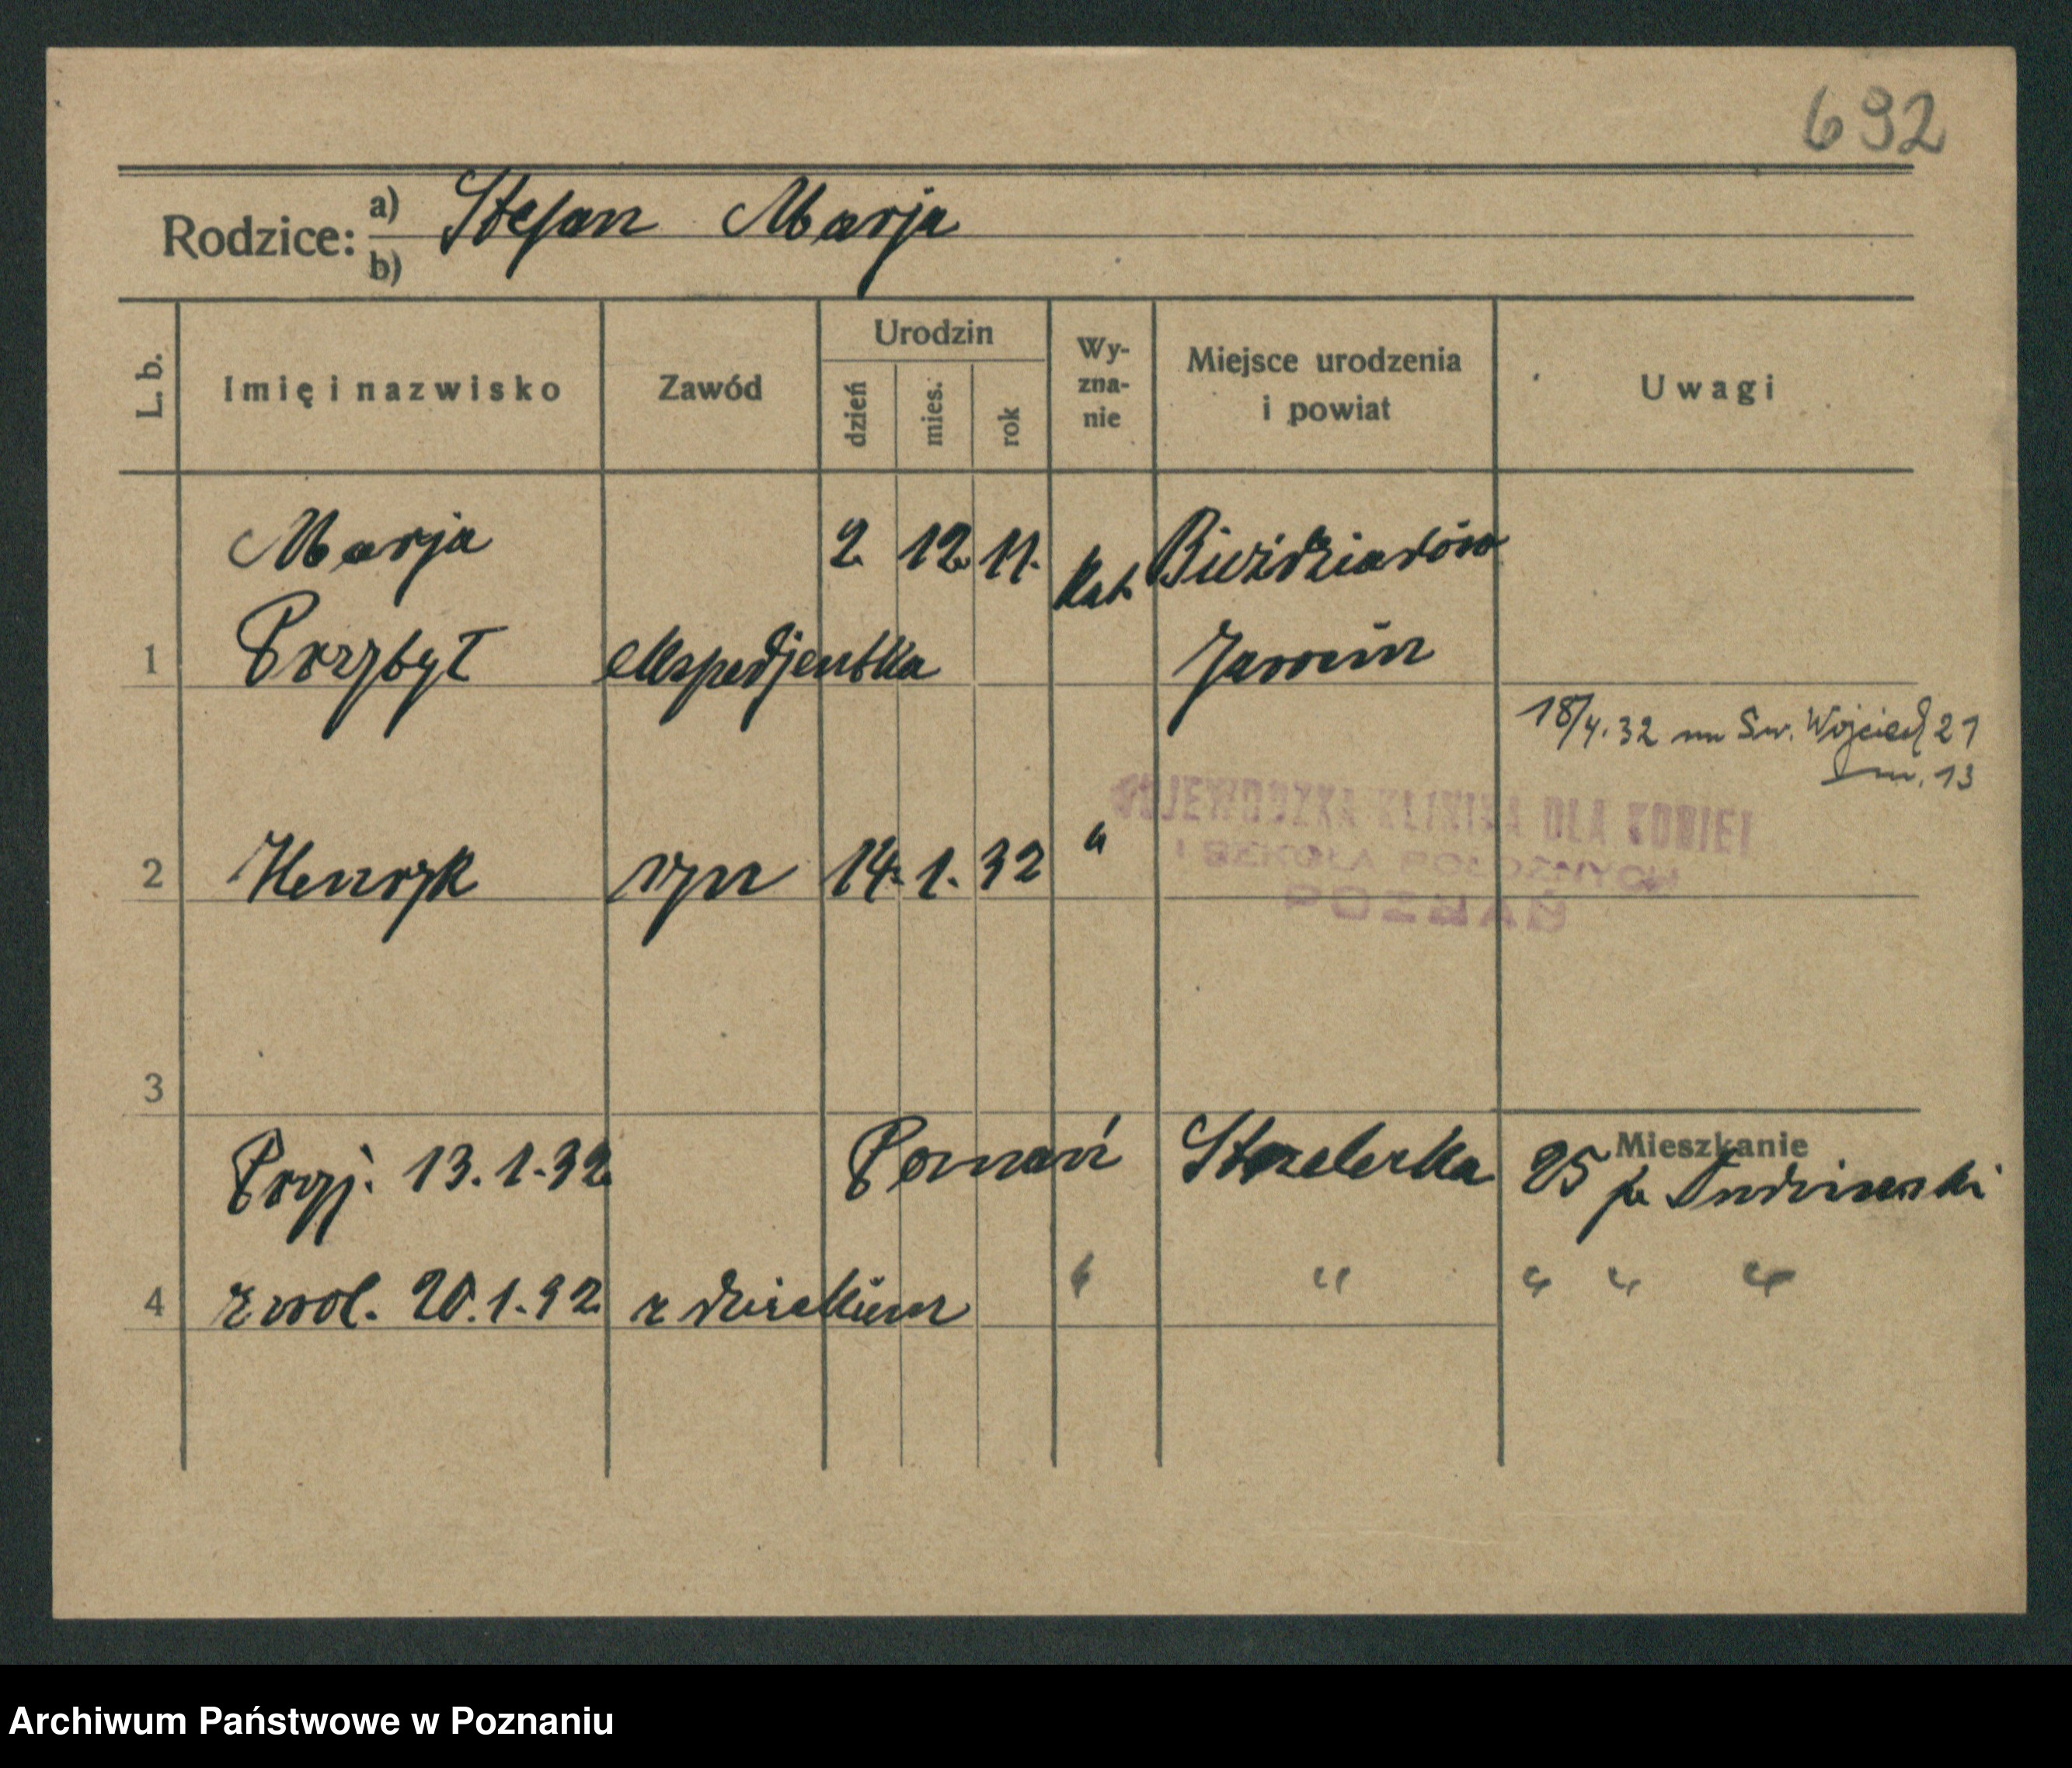 692
Rodzice: a) Stefan Marja
b)
L. b. Imię i nazwisko Zawód Urodzin dzień mies. rok Wy-zna-nie Miejsce urodzenia i powiat Uwagi
Marja 2. 12. 11. kat. Bieździadów
1 Przybył ekspedjentka Jarocin
18/4.32 na Św. Wojciech 21
m. 13
WOJEWÓDZKA KLINIKA DLA KOBIET
I SZKOŁA POŁOŻNYCH
POZNAŃ
2 Henryk syn 14. 1. 32 "
3
Mieszkanie
Przyj. 13.1.32 Poznań Strzelecka 25 p.
4 zwol. 20.1.32 z dzieckiem " " " " "
Archiwum Państwowe w Poznaniu